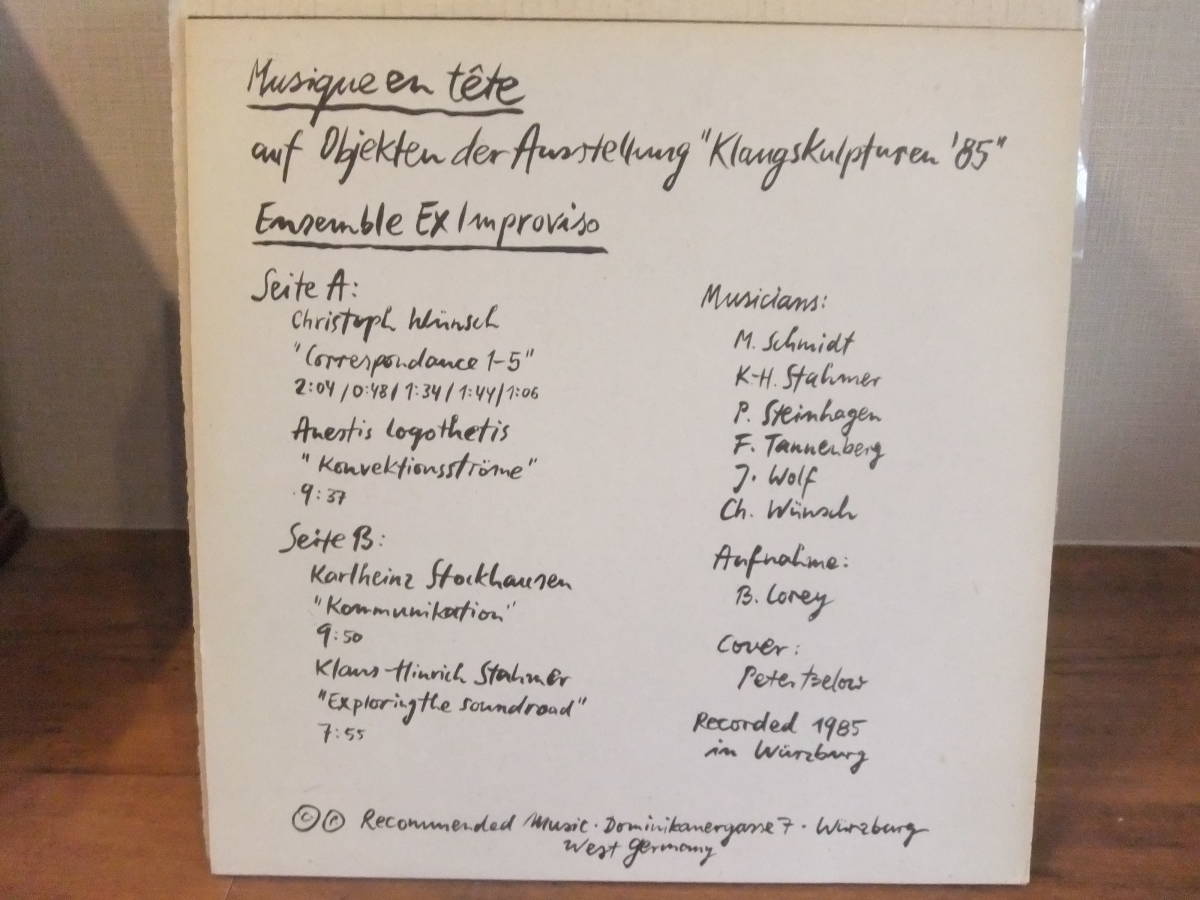 Musique en tête
auf Objekten der Ausstellung "Klangskulpturen '85"
Ensemble Ex Improviso
Seite A:
Christoph Wünsch
"Correspondance 1-5"
2:04 / 0:48 / 1:34 / 1:44 / 1:06
Anestis Logothetis
"Konvektionsströme"
9:37
Seite B:
Karlheinz Stockhausen
"Kommunikation"
9:50
Klaus-Hinrich Stahmer
"Exploring the soundroad"
7:55
Musicians:
M. Schmidt
K-H. Stahmer
P. Steinhagen
F. Tannenberg
J. Wolf
Ch. Wünsch
Aufnahme:
B. Lorey
Cover:
Peter
Recorded 1985
in Würzburg
© ℗ Recommended Music · Dominikanergasse 7 · Würzburg
West Germany